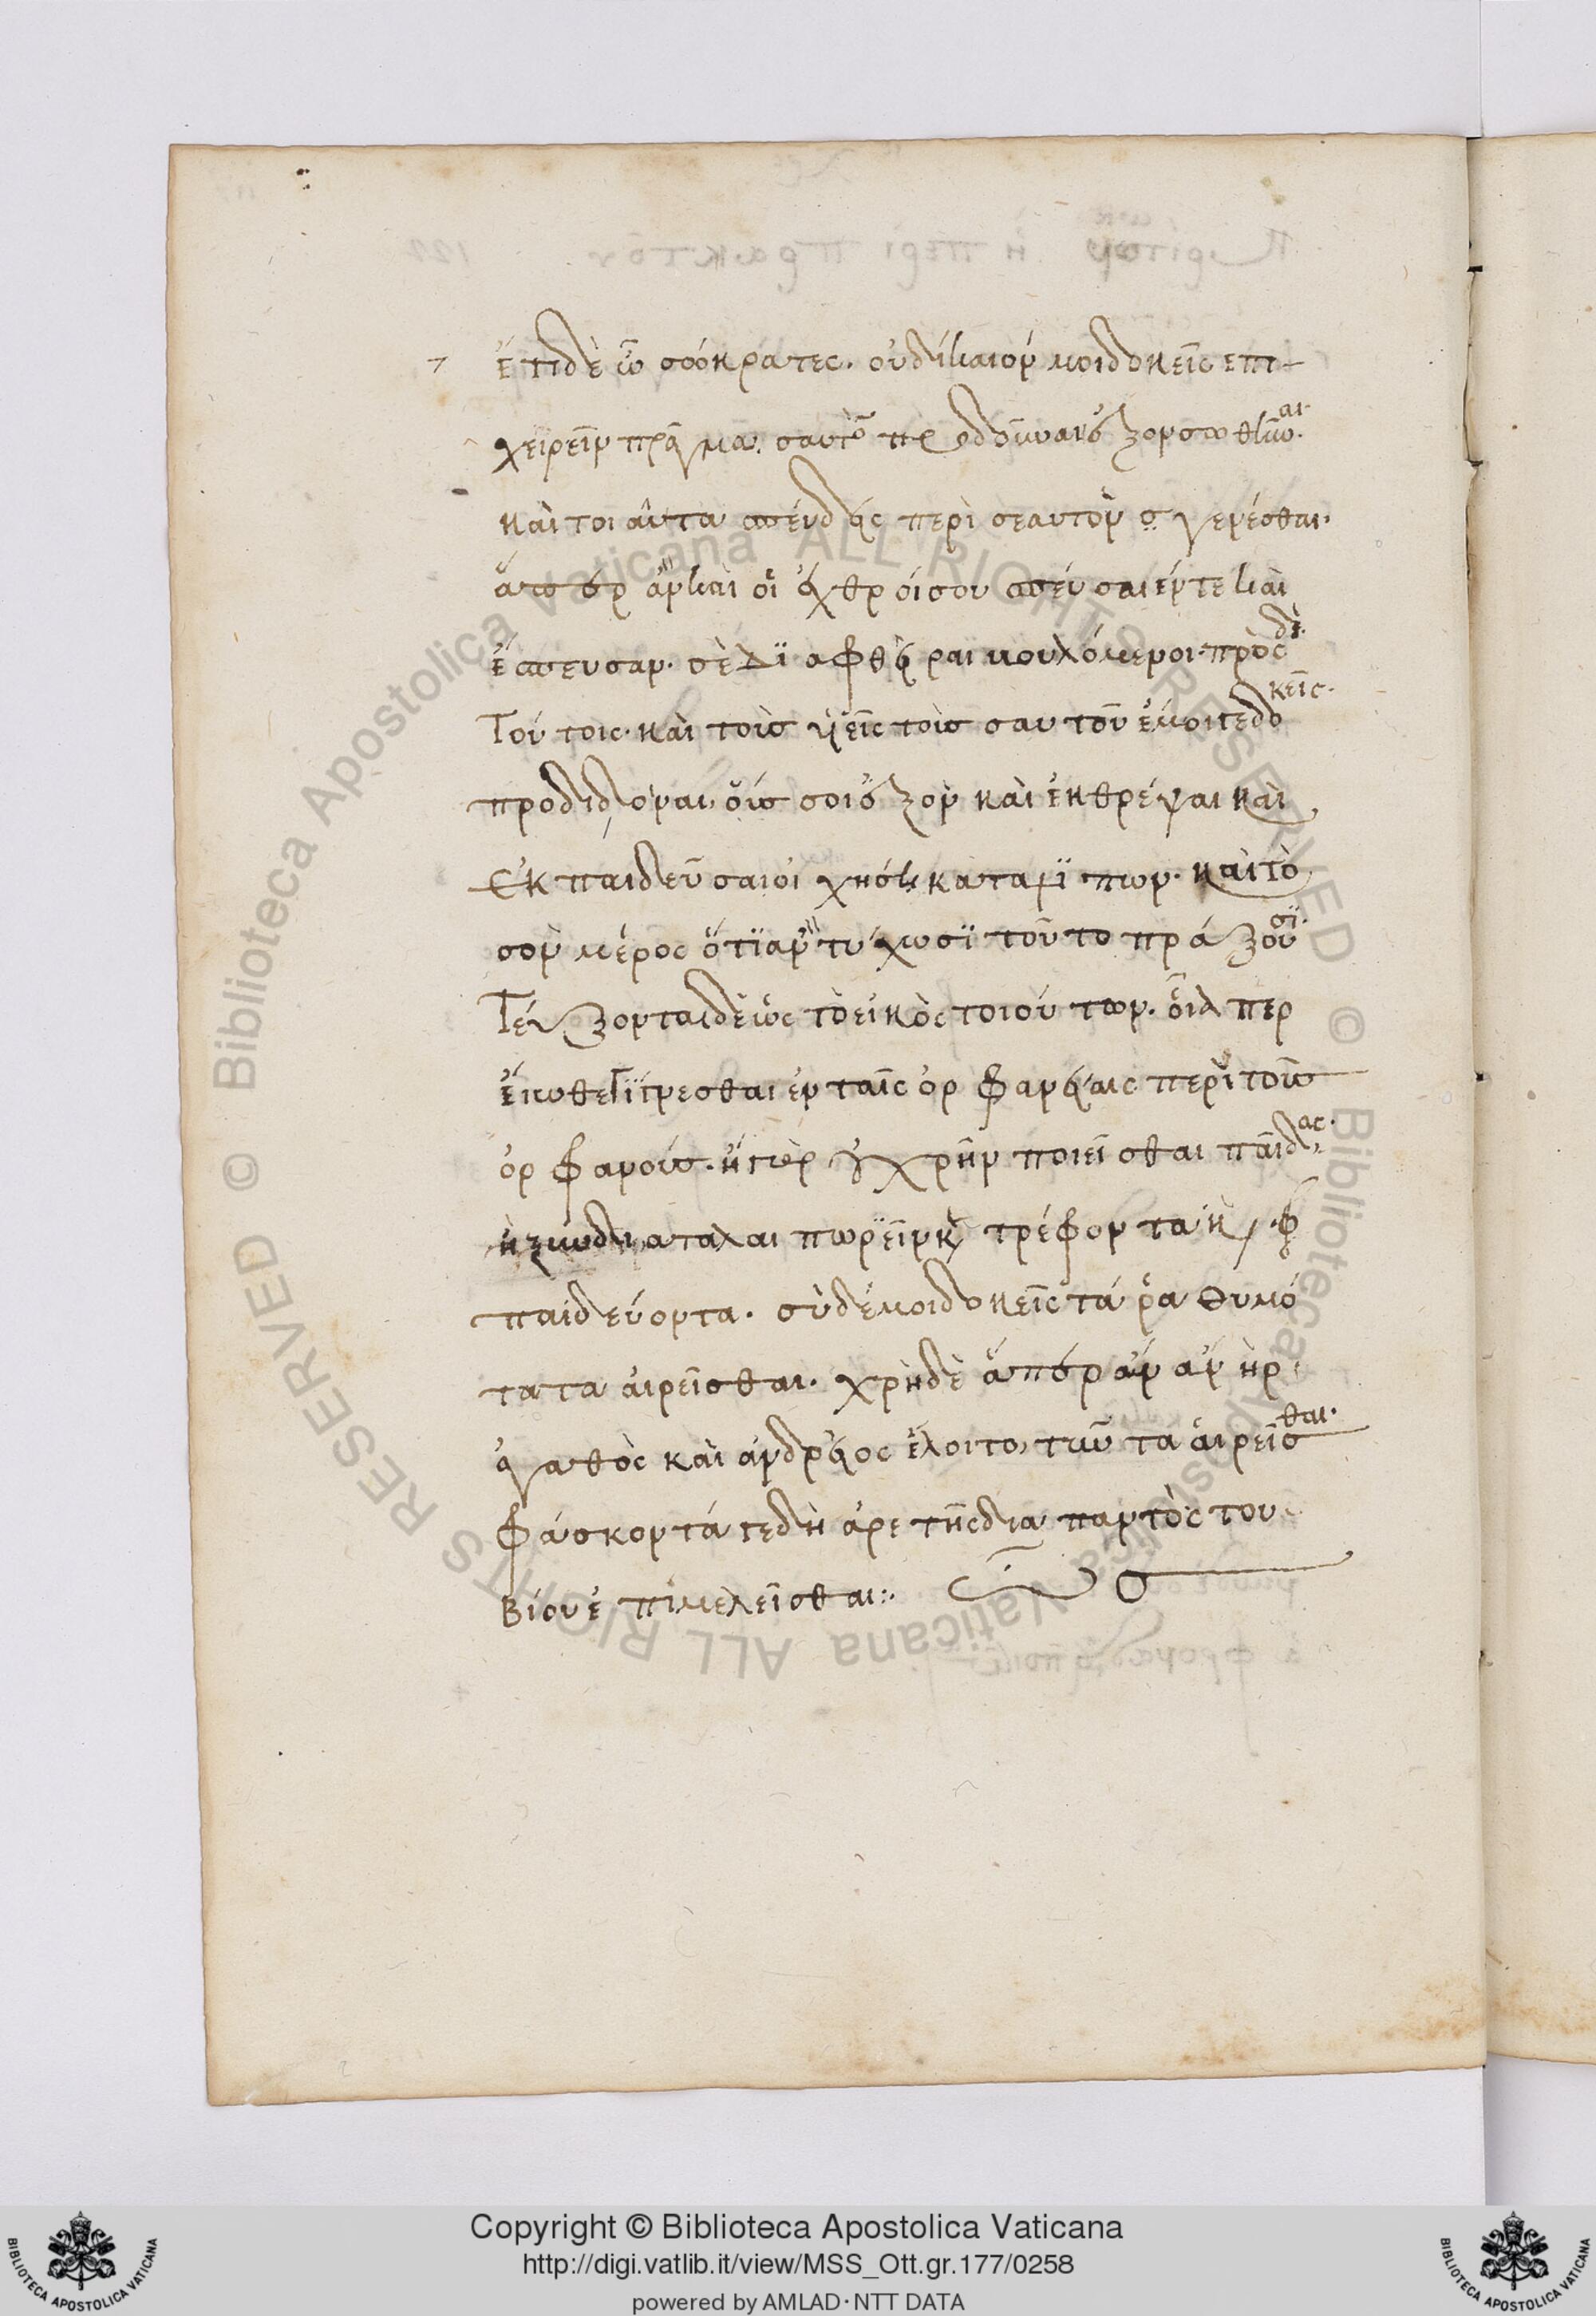 ἔτι δὲ ὦ σώκρατες. οὐδὲ δίκαιόν μοι δοκεῖς ἐπι
χειρεῖν πρᾶγμα. σαυτὸν προδοῦναι ἐξὸν σωθῆναι.
καὶ τοιαῦτα σπεύδεις περὶ σεαυτὸν γενέσθαι.
ἅπερ ἂν καὶ οἱ ἐχθροί σου σπεύσαιέν τε καὶ
ἔσπευσαν. σὲ διαφθεῖραι βουλόμενοι. πρὸς δὲ
τούτοις. καὶ τοὺς υἱεῖς τοὺς σαυτοῦ ἔμοιγε δοκεῖς.
προδιδόναι, οὕς σοι ἐξὸν καὶ ἐκθρέψαι καὶ
ἐκπαιδεῦσαι οἰχήσῃ καταλιπών. καὶ τὸ
σὸν μέρος ὅτι ἂν τύχωσι τοῦτο πράξουσι.
τεύξονται δὲ ὡς τὸ εἰκὸς τοιούτων. οἷάπερ
εἴωθε γίγνεσθαι ἐν ταῖς ὀρφανίαις περὶ τοὺς
ὀρφανούς. ἢ γὰρ οὐ χρῆν ποιεῖσθαι παῖδας.
ἢ ξυνδιαταλαιπωρεῖν καὶ τρέφοντα καὶ
παιδεύοντα. σὺ δέ μοι δοκεῖς τὰ ῥᾳθυμό
τατα αἱρεῖσθαι. χρὴ δὲ ἅπερ ἂν ἀνὴρ
ἀγαθὸς καὶ ἀνδρεῖος ἕλοιτο, ταῦτα αἱρεῖσθαι.
φάσκοντά γε δὴ ἀρετῆς διὰ παντὸς τοῦ
βίου ἐπιμελεῖσθαι:
Copyright © Biblioteca Apostolica Vaticana
http://digi.vatlib.it/view/MSS_Ott.gr.177/0258
powered by AMLAD·NTT DATA